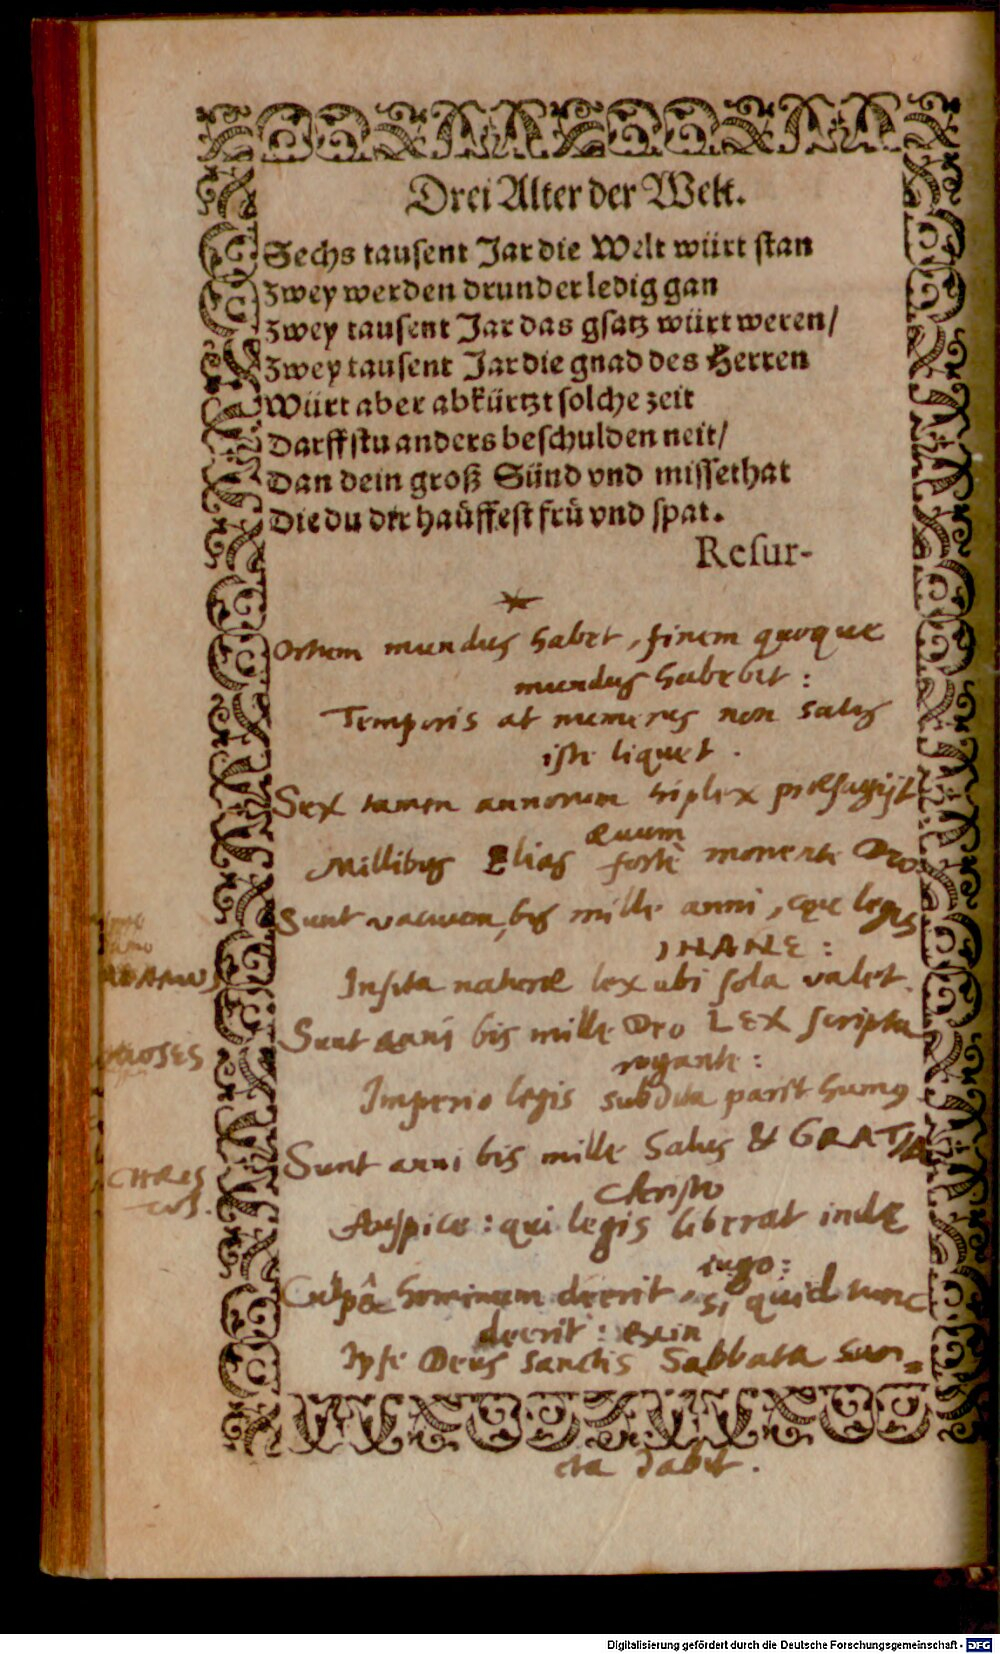 Drei Alter der Welt.
Sechs tausent Jar die Welt würt stan
Zwey werden drunder ledig gan
Zwey tausent Jar das gsatz würt weren/
Zwey tausent Jar die gnad des Herren
Würt aber abkürtzt solche zeit
Darffstu anders beschulden neit/
Dan dein groß Sünd vnd missethat
Die du dir haüffest frü vnd spat.
Resur-
Ortum mundus habet, finem quoque
mundus habebit:
Temporis at numerus non satis
iste liquet.
Sex tamen annorum triplex præsagijt
ævum
Millibus Elias monente Deo
Sunt vacuum, bis mille anni, legis
INANE:
Insita naturæ lex ubi sola valet.
Sunt anni bis mille Deo LEX scripta
rogante:
Imperio legis subdita paret humus
Sunt anni bis mille Salus & GRATIA
Christo
Auspice: qui legis liberat inde
iugo:
hominum deerit, si quid tunc
deerit: exin
Ipse Deus sanctis Sabbata san=
cta dabit.
ADAMUS
MOSES
CHRIS
TUS.
Digitalisierung gefördert durch die Deutsche Forschungsgemeinschaft - DFG